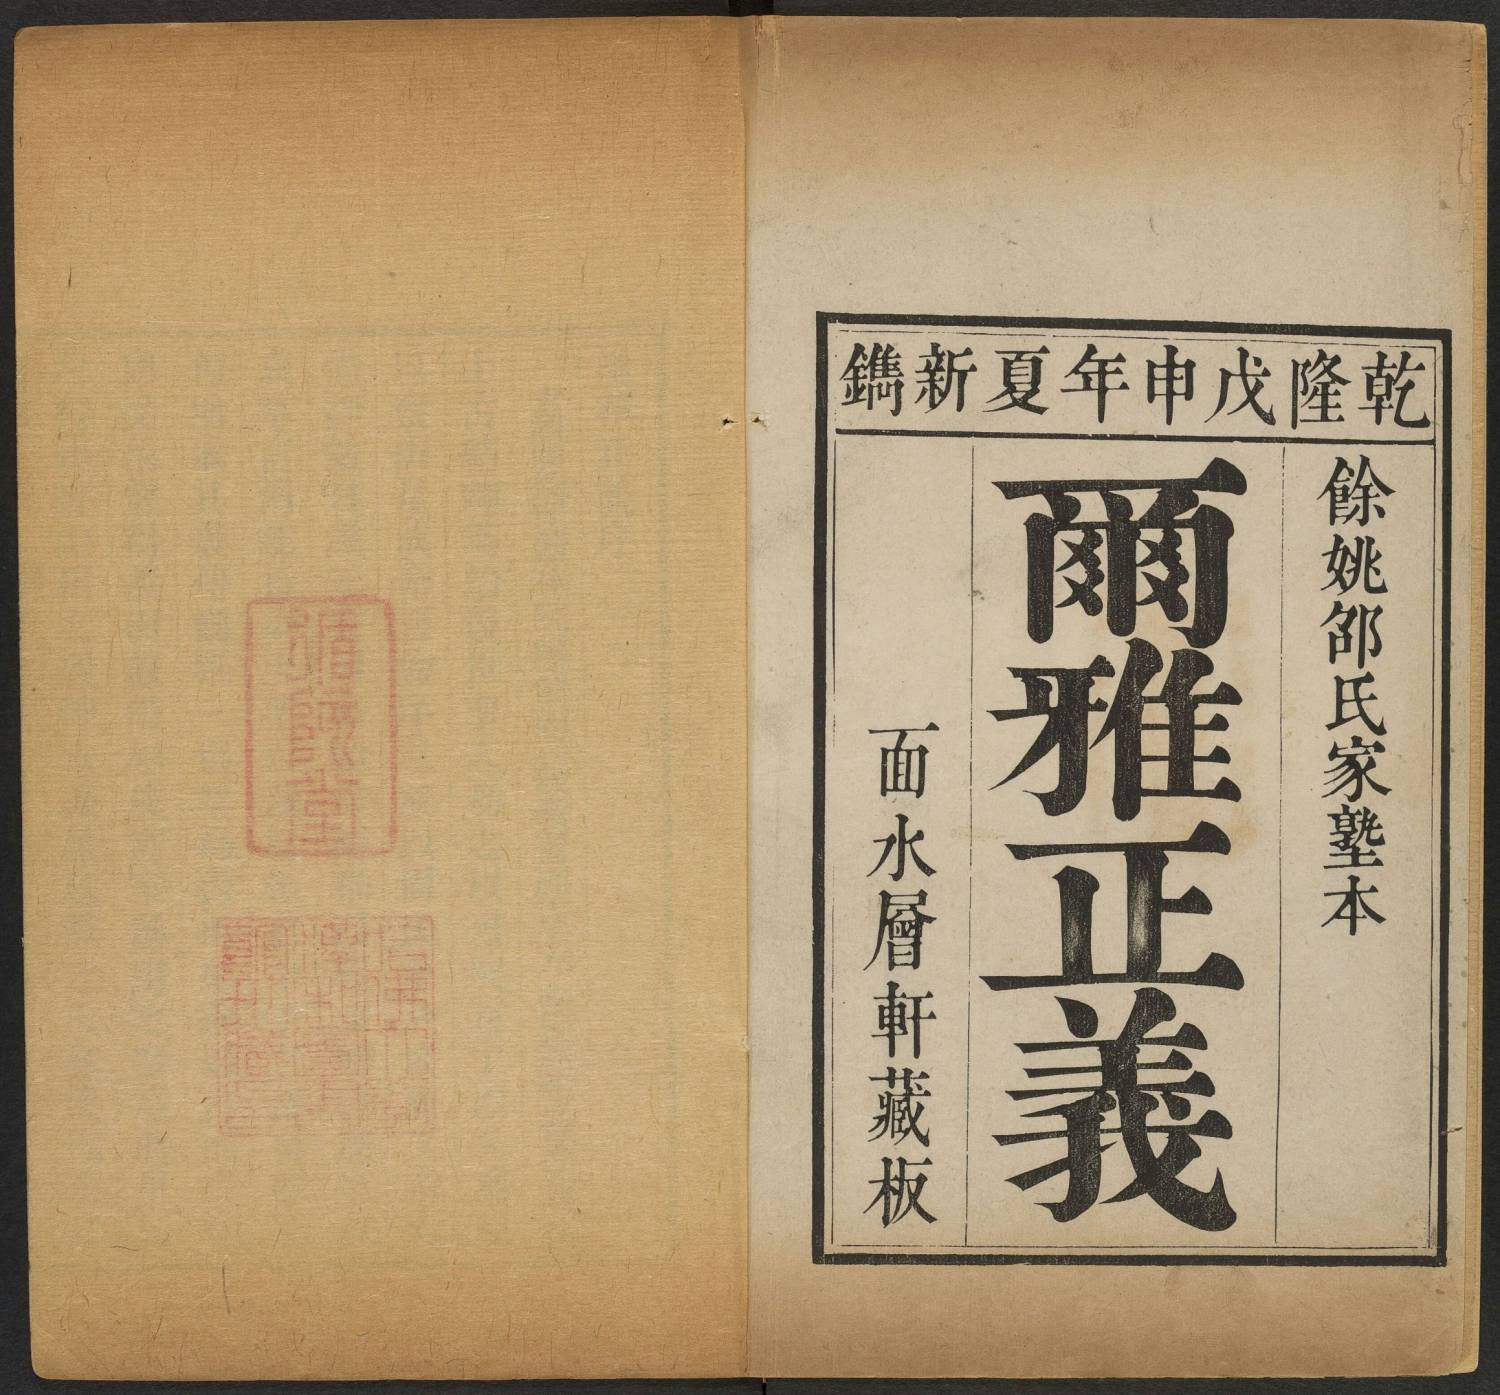 乾隆戊申年夏新鐫
餘姚邵氏家塾本
爾雅正義
面水層軒藏板